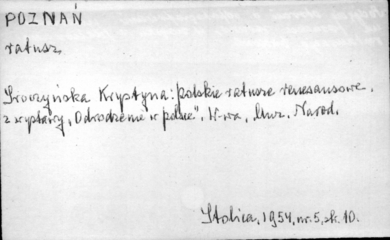 POZNAŃ
ratusz
Sroczyńska Krystyna: Polskie ratusze renesansowe.
z wystawy „Odrodzenie w Polsce". W-wa, Muz. Narod.
Stolica, 1954, nr. 5, sk. 10.